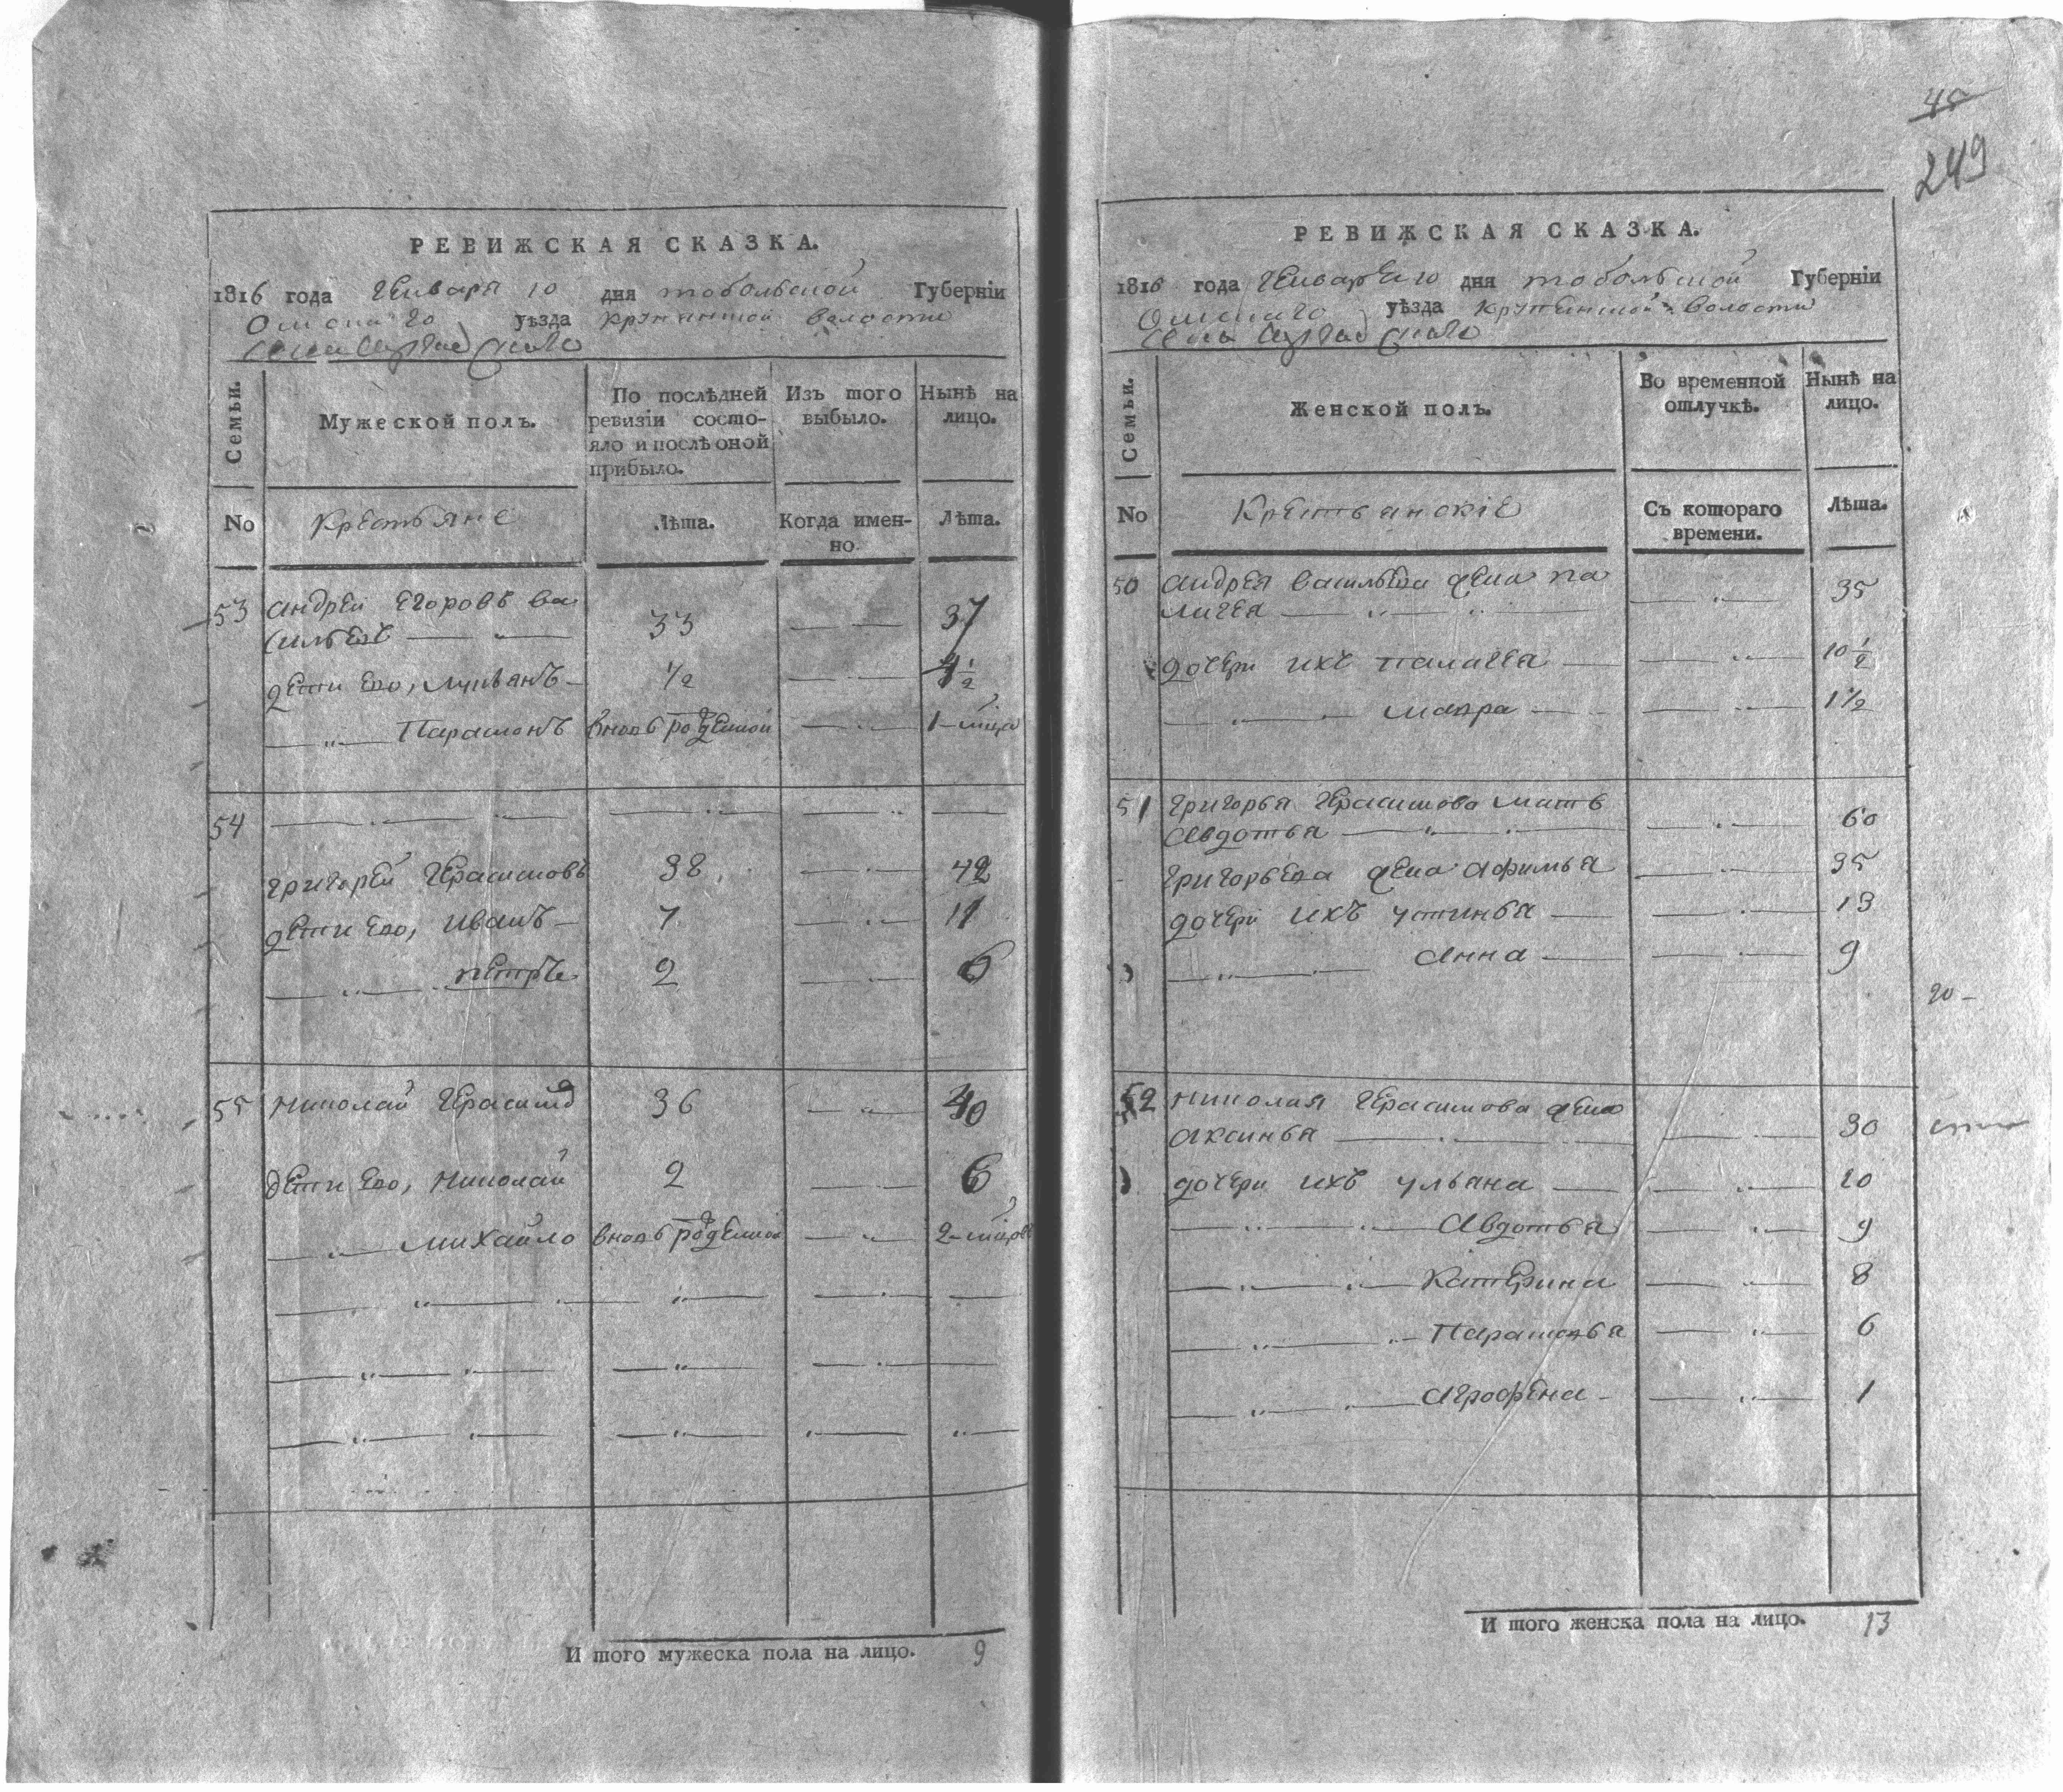 РЕВИЖСКАЯ СКАЗКА.
1816 года Генваря 10 дня тобольской Губернїи
Омскаго уѣзда крупянской волости
села
Семьи.
Мужеской полъ.
По послѣдней ревизїи состо-
яло и послѣ оной
прибыло.
Изъ того
выбыло.
Нынѣ на
лицо.
No
Крестьяне
Лѣта.
Когда имен-
но.
Лѣта.
53 андрей Егоровъ ва
сильевъ 33 37
дети ево, лукьянъ 1/2 4 1/2
Парамонъ вновь рожденной 1
54
григорей Герасимовъ 38 42
дети ево, иванъ 7 11
петръ 2 6
55 николай Герасимов 36 40
дети ево, николай 2 6
михайло вновь рожденной 2
И того мужеска пола на лицо. 9
45
249
РЕВИЖСКАЯ СКАЗКА.
1816 года Генваря 10 дня тобольской Губернїи
Омскаго уѣзда крупянской волости
села
Семьи.
Женской полъ.
Во временной
отлучкѣ.
Нынѣ на
лицо.
No
Крестьянскїе
Съ котораго
времени.
Лѣта.
50 андрея васильева жена па
лагея 35
дочери ихъ палагея 10 1/2
мавра 1 1/2
51 григорья Герасимова мать
авдотья 60
григорьева жена афимья 35
дочери ихъ устинья 13
анна 9
20
52 николая Герасимова жена
аксинья 30
дочери ихъ ульяна 10
авдотья 9
катерина 8
Парасковья 6
аграфена 1
И того женска пола на лицо. 13